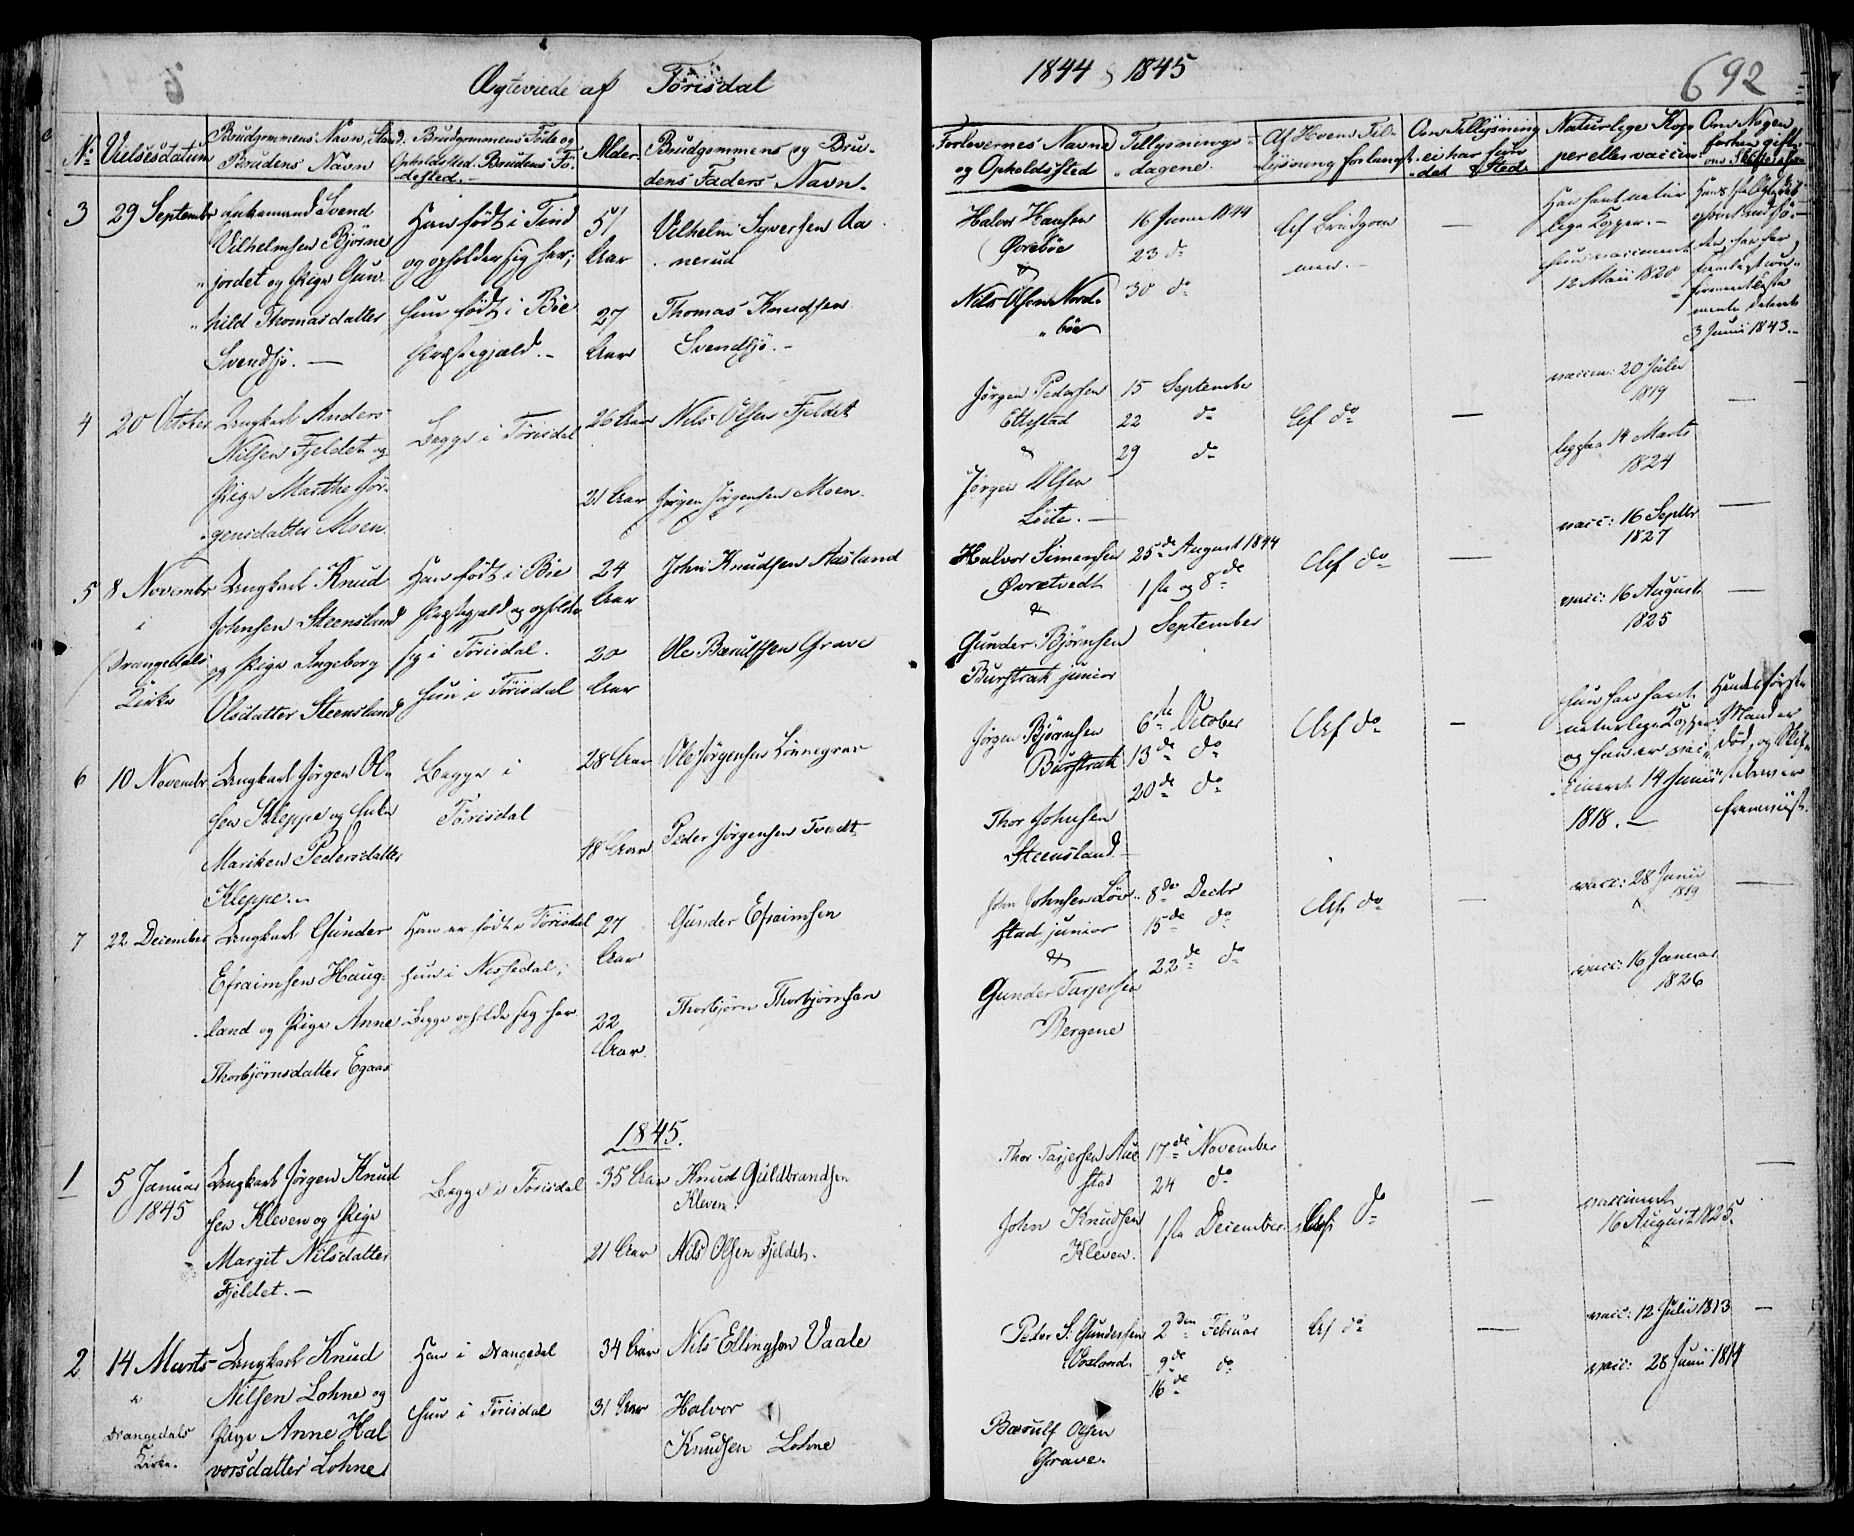 Ægteviede af Törisdal
1844 & 1845
692
No
Vielsesdatum
Brudgommens Navn, Stand. Brudens Navn
Brudgommens Föde og Opholdsted. Brudens Födested.
Alder
Brudgommens og Brudens Faders Navn.
Forlovernes Navne og Opholdsted
Tillysningsdagene.
Af Hvem Tillysning forlangt
Om Tillysning ei har fundet Sted.
Naturlige Kopper eller vaccin:
Om Nogen forhen gift
3
29 September
Enkemand Svend
Vilhelmsen Bjørne
jordet og Pige Gun-
hild Thomasdatter
Svendsjö. —
Han födt i Tind
og opholder sig her;
hun födt i Böe
Præstegjæld. -
51
Aar
27
Aar
Vilhelm Syversen Aa
nerud
Thomas Knudsen
Svendsjö. -
Halvor Hansen
Övreböe
&
Nils Olsen Nord-
böe
16 Juni 1844
23 do
30 do
Af Brudgom
men. -
—
Han havt natur
lige Kopper. -
hun vaccineret
12 Mai 1820
3 Juni 1843. -
4
20 October
Ungkarl Anders
Nilsen Fjeldet og
Pige Marthe Jör-
gensdatter Moen
Begge i Törisdal
26 Aar
21 Aar
Nils Olsen Fjeldet
Jørgen Jørgensen Moen.
Jørgen Pedersen
&
Jørgen Olsen
15 September
22 do
29 do
Af do
—
vaccin: 20 Juli
1819
14 Marts
1824
—
5
8 Novembr
i
Drangedals
Kirke
Ungkarl Knud
Johnsen Steensland
og Pige Ingeborg
Olsdatter Steensland
Han födt i Böe
Præstegjæld og opholder
sig i Törisdal.
hun i Törisdal
24
Aar
20
Aar
John Knudsen Aasland
Ole Bærulfsen Grave
Halvor Simonsen
Övretvedt
&
Gunder Bjørnsen
Burstrak junior
25de August 1844
1ste og 8de
September
Af do
—
vacc: 16 Septbr
1827
vacc: 16 August
1825
—
6
10 Novembr
Ungkarl Jörgen Ol-
sen Kleppe og Enke
Mariken Pedersdatter
Kleppe. -
Begge i
Törisdal
28 Aar
48 Aar
Ole Jörgensen Lönnegrav
Peder Jörgensen Tvedt
Jørgen Bjørnsen
Burstrak
Thor Johnsen
Steensland
6te October
13de do
20de do
Af do
—
hun har havt
naturlige Kopper
og han er vac-
cineret 14 Junii
1818. -
Hendes første
Mand er
død, og Skif-
tebrev er
fremviist.
7
22 December
Ungkarl Gunder
Efraimsen Haug-
land og Pige Anne
Thorbjörnsdatter Egaas
Han er födt i Törisdal
hun i Nissedal;
Begge opholde sig her
27
Aar
22
Aar.
Gunder Efraimsen
Thorbjörn Thorbjörnsen
John Johnsen Löv-
stad junior
&
Gunder Tarjersen
Bergene
8de Decbr
15de do
22de do
Af do
—
vacc: 28 Junii
1819
vacc: 16 Januar
1826
—
1845.
1
5 Januar
1845
Ungkarl Jørgen Knud
sen Kleven og Pige
Margit Nilsdatter
Fjeldet. —
Begge i Törisdal
35 Aar
21 Aar
Knud Guldbrandsen
Kleven.
Nils Olsen Fjeldet.
Thor Tarjersen Au
stad
John Knudsen
Kleven.
17de November
24 do
1ste December
Af do
—
vaccineret
16 August 1825.
—
2
14 Marts
i
Drangedals
Kirke.
Ungkarl Knud
Nilsen Lohne og
Pige Anne Hal
vorsdatter Lohne
Han i Drangedal
hun i Törisdal
34 Aar
31 Aar
Nils Ellingsen Vaale
Halvor
Knudsen Lohne
Peder S: Gundersen
Bærulf Olsen
Grave.
2den Februar
9de do
16de
Af do
—
vacc: 12 Julii 1813
vacc: 28 Junii 1814
—